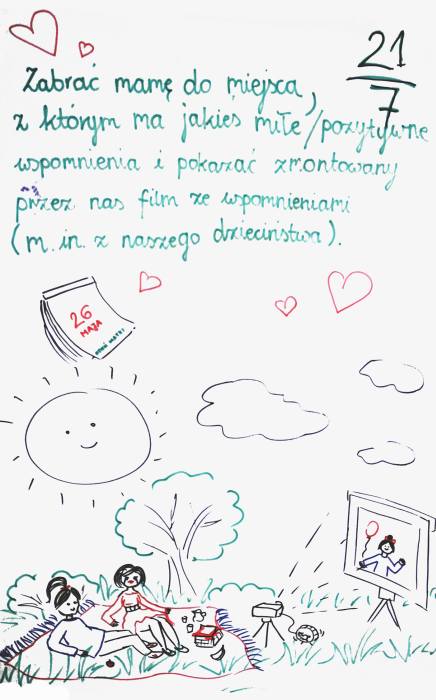 21
7
Zabrać mamę do miejsca,
z którym ma jakieś miłe/pozytywne
wspomnienia i pokazać zmontowany
przez nas film ze wspomnieniami
(m.in. z naszego dzieciństwa).
26
MAJA
DZIEŃ MATKI